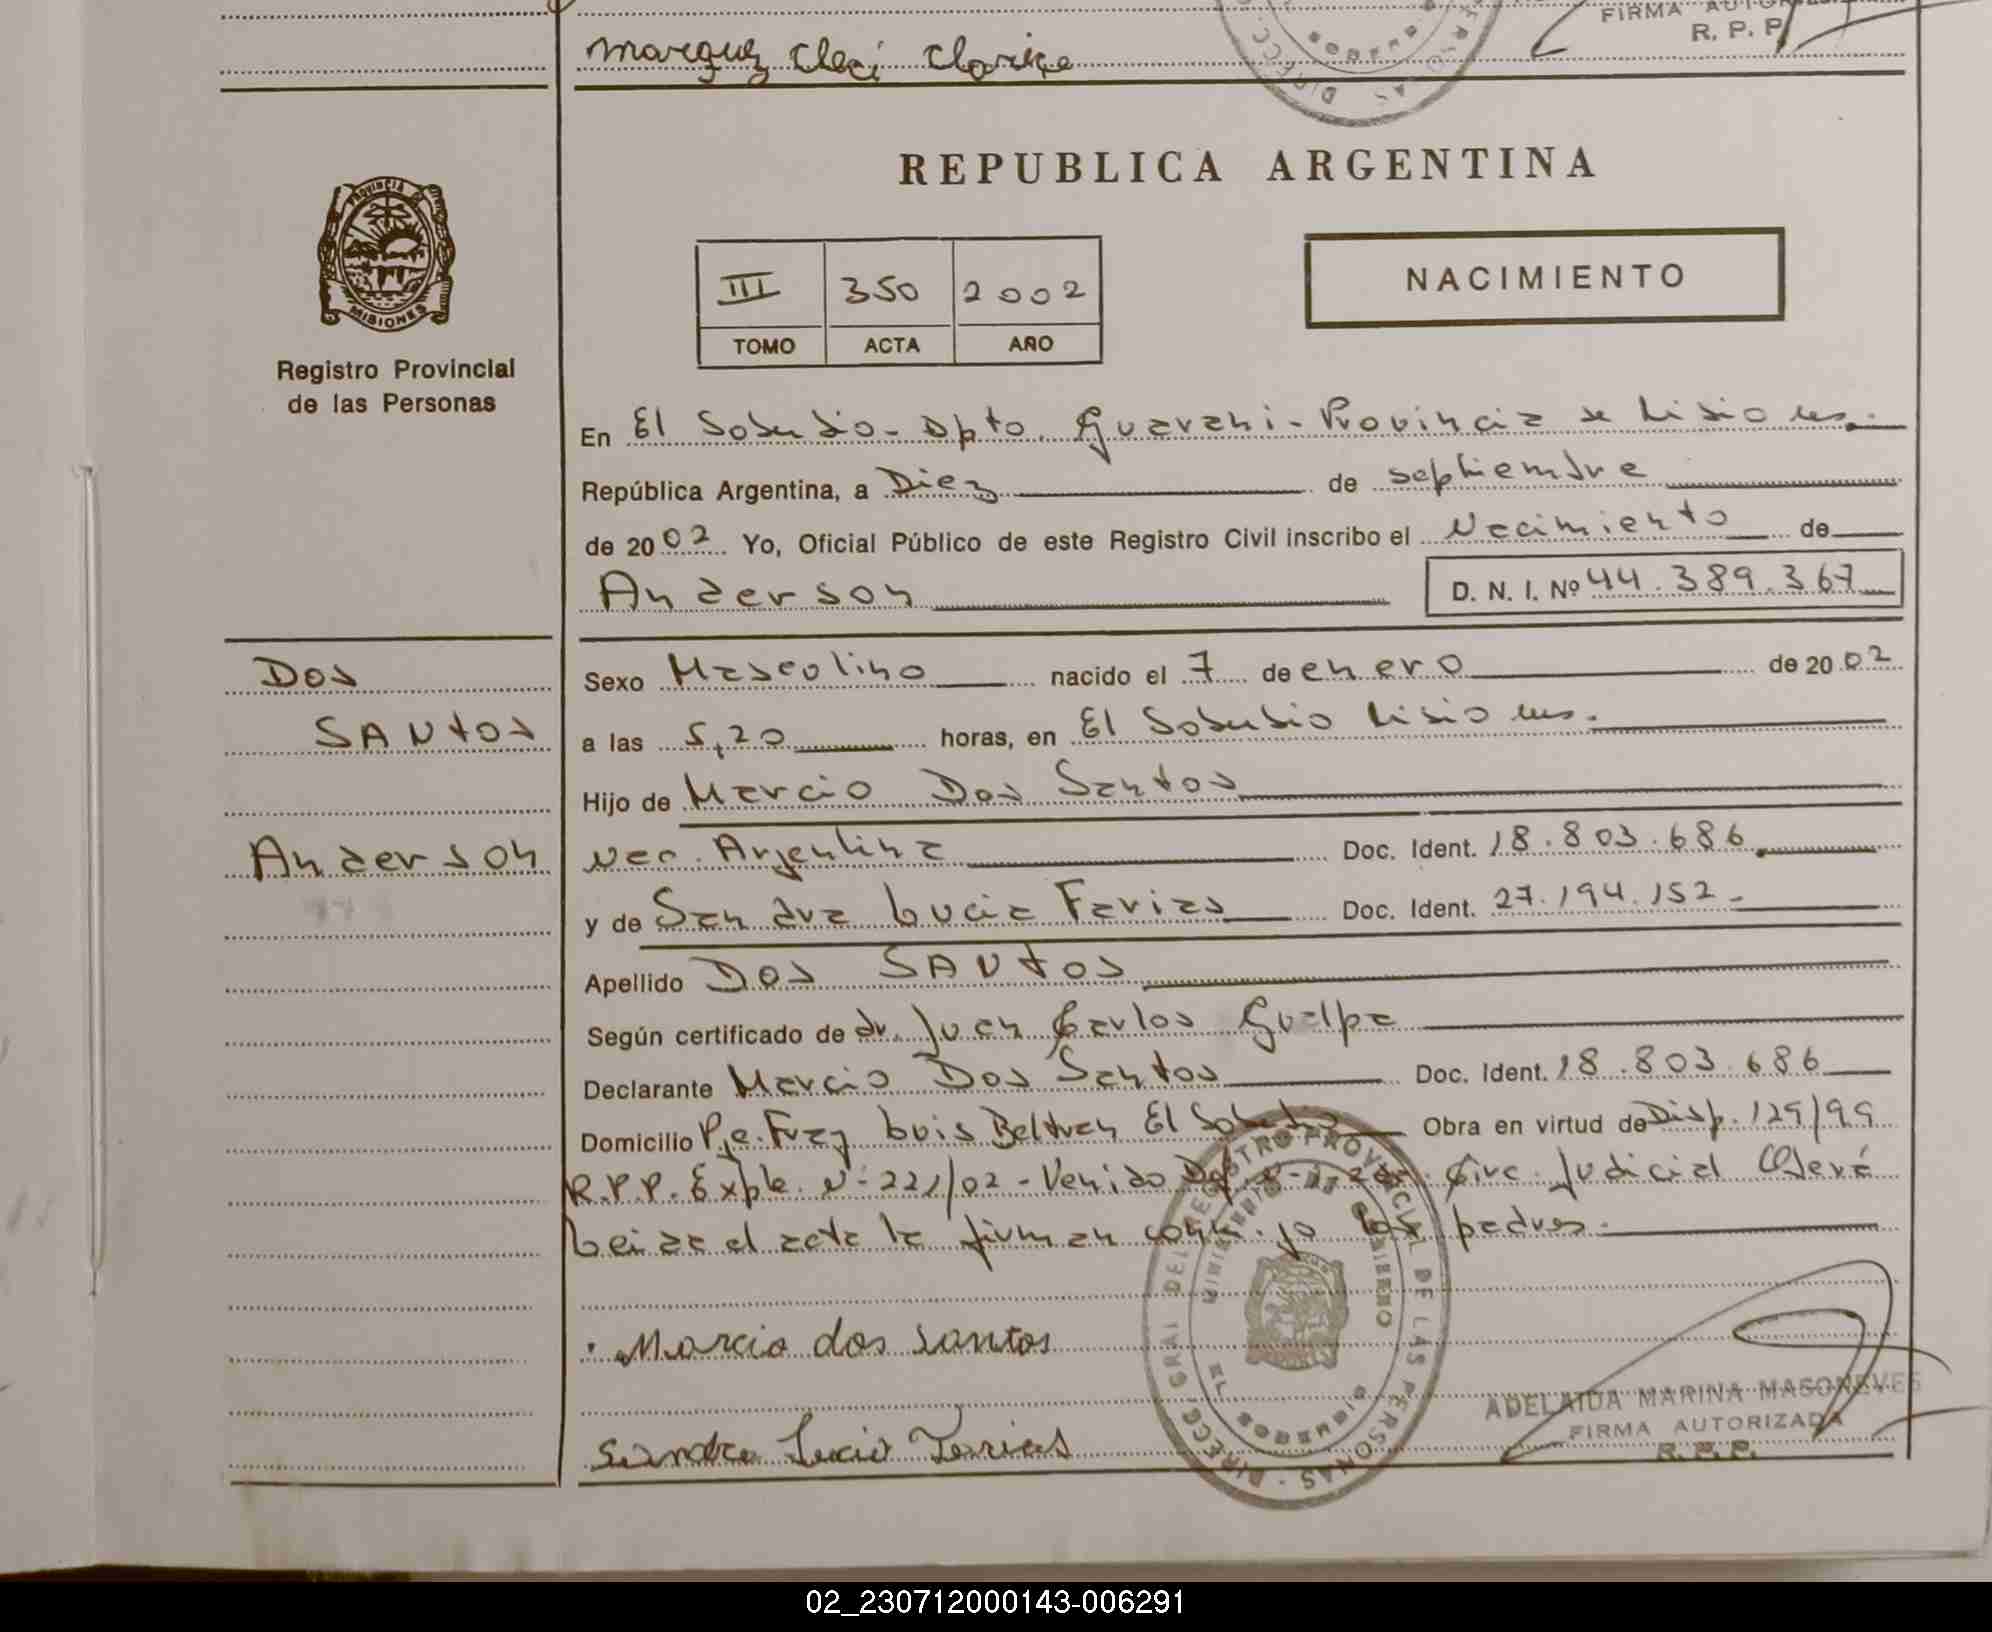 Marquez Cleci Clarice
FIRMA AUTORIZADA
R. P. P.
REPUBLICA ARGENTINA
PROVINCIA
MISIONES
Registro Provincial
de las Personas
III 350 2002
TOMO ACTA AÑO
NACIMIENTO
En El Soberbio - Dpto. Guarani - Provincia de Misiones.
República Argentina, a Diez de septiembre
de 2002 Yo, Oficial Público de este Registro Civil inscribo el Nacimiento de
Anderson D. N. I. Nº 44.389.367
Dos
Santos
Anderson
Sexo Masculino nacido el 7 de enero de 2002
a las 5,20 horas, en El Soberbio Misiones.
Hijo de Marcio Dos Santos
Nac. Argentina Doc. Ident. 18.803.686
y de Sandra Lucia Farias Doc. Ident. 27.194.152
Apellido DOS SANTOS
Según certificado de dr. Juan Carlos Gualpa
Declarante Marcio Dos Santos Doc. Ident. 18.803.686
Domicilio Pje. Fray Luis Beltran El Soberbio Obra en virtud de Disp. 129/99
R.P.P. Expte. Nº 221/02 - Venido Circ. Judicial Oberá
Leida el acta la firman conmigo los padres.
Marcio dos santos
Sandra Lucia Farias
DIRECC. GRAL DEL REGISTRO PROVINCIAL DE LAS PERSONAS
MINISTERIO DE GOBIERNO
ADELAIDA MARINA MASONEVES
FIRMA AUTORIZADA
R. P. P.
02_230712000143-006291